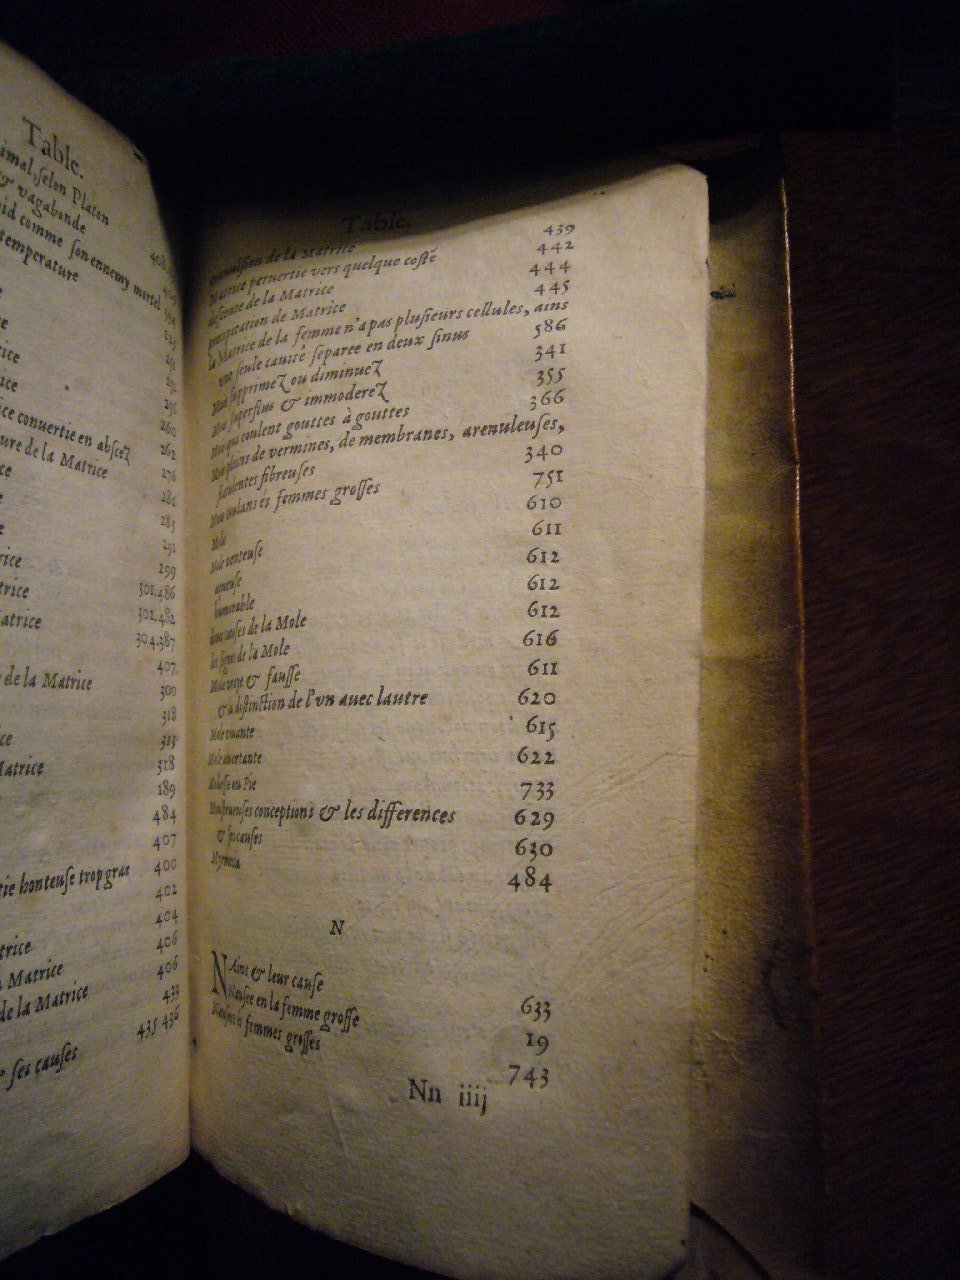 Table.
imal, selon Platon
& vagabonde
id comme son ennemy mortel
temperature
ice
ice conuertie en abscez 260
ure de la Matrice 262
276
284
285
291
rice 299
trice 301.486
atrice 302.482
304.387
407
de la Matrice 300
318
ce 313
Matrice 318
189
484
407
tie honteuse trop gras 400
402
404
trice 406
a Matrice 406
de la Matrice 433
435 436
& ses causes
Table.
de la Matrice 439
Matrice peruertie vers quelque costé 442
descente de la Matrice 444
precipitation de Matrice 445
la Matrice de la femme n'a pas plusieurs cellules, ains
vne seule cauité separee en deux sinus 586
Mois supprimez ou diminuez 341
Mois superflus & immoderez 355
Mois que coulent gouttes à gouttes 366
Mois pleins de vermines, de membranes, arenuleuses,
fibreuses 340
és femmes grosses 751
Mole 610
Mole venteuse 611
aqueuse 612
humorable 612
causes de la Mole 612
les signes de la Mole 616
Mole vraye & fausse 611
& la distinction de l'vn auec lautre 620
Mole viuante 615
Mole auortante 622
Molesse ou Pie 733
Monstrueuses conceptions & les differences 629
& ses causes 630
484
N
NAins & leur cause 633
Nausee en la femme grosse 19
és femmes grosses 743
Nn iiij